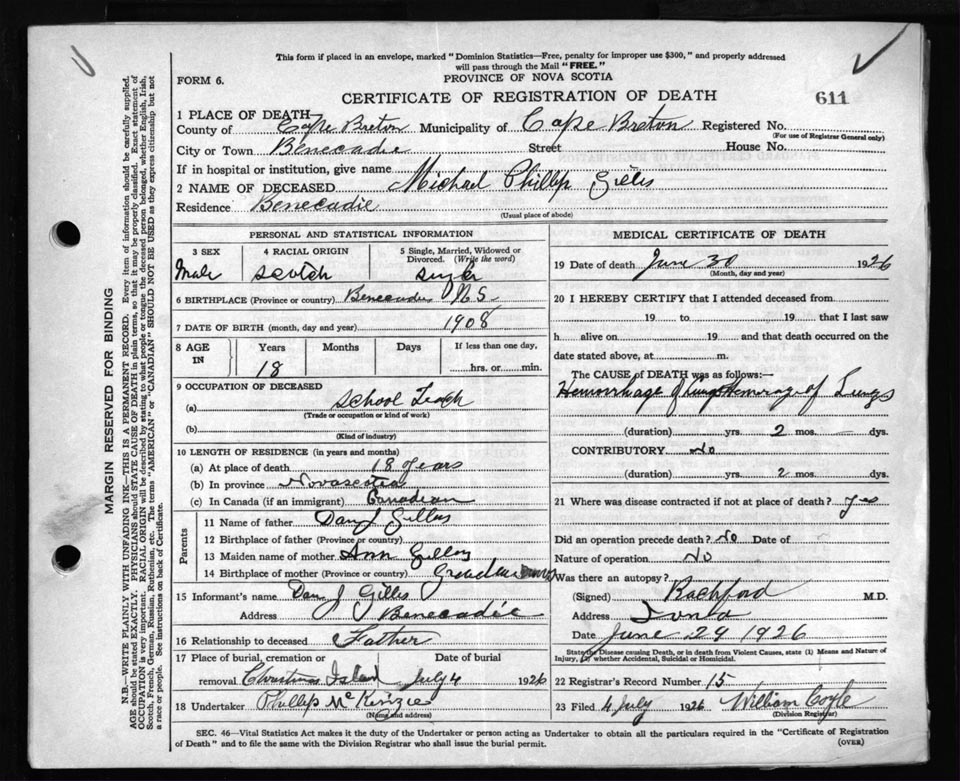 This form if placed in an envelope, marked "Dominion Statistics—Free, penalty for improper use $300," and properly addressed
will pass through the Mail "FREE."
FORM 6.
PROVINCE OF NOVA SCOTIA
CERTIFICATE OF REGISTRATION OF DEATH
611
1 PLACE OF DEATH
County of Cape Breton Municipality of Cape Breton Registered No.
(For use of Registrar General only)
City or Town Benecadie Street House No.
If in hospital or institution, give name
2 NAME OF DECEASED Michael Phillip Gillis
Residence Benecadie
(Usual place of abode)
PERSONAL AND STATISTICAL INFORMATION
3 SEX 4 RACIAL ORIGIN 5 Single, Married, Widowed or Divorced. (Write the word)
Male Scotch single
6 BIRTHPLACE (Province or country) Benecadie N.S
7 DATE OF BIRTH (month, day and year) 1908
8 AGE IN Years Months Days If less than one day,
18 hrs. or min.
9 OCCUPATION OF DECEASED
(a) School Teach
(Trade or occupation or kind of work)
(b)
(Kind of industry)
10 LENGTH OF RESIDENCE (in years and months)
(a) At place of death 18 years
(b) In province Novascotia
(c) In Canada (if an immigrant) Canadian
Parents
11 Name of father Dan J Gillis
12 Birthplace of father (Province or country)
13 Maiden name of mother Ann
14 Birthplace of mother (Province or country)
15 Informant's name Dan J Gillis
Address Benecadie
16 Relationship to deceased Father
17 Place of burial, cremation or removal Date of burial
Christmas Island July 4 1926
18 Undertaker Phillip McKinzie
(Name and address)
MEDICAL CERTIFICATE OF DEATH
19 Date of death June 30 1926
(Month, day and year)
20 I HEREBY CERTIFY that I attended deceased from
19 to 19 that I last saw
h alive on 19 and that death occurred on
date stated above, at m.
The CAUSE OF DEATH was as follows:—
Hemorrhage of Lungs
(duration) yrs. 2 mos. dys.
CONTRIBUTORY No
(duration) yrs. 2 mos. dys.
21 Where was disease contracted if not at place of death? yes
Did an operation precede death? No Date of
Nature of operation No
Was there an autopsy?
(Signed) M.D.
Address
Date June 29 1926
State the Disease causing Death, or in death from Violent Causes, state (1) Means and Nature of Injury, (2) whether Accidental, Suicidal or Homicidal.
22 Registrar's Record Number 15
23 Filed 4 July 1926 William Coyle
(Division Registrar)
SEC. 46—Vital Statistics Act makes it the duty of the Undertaker or person acting as Undertaker to obtain all the particulars required in the "Certificate of Registration
of Death" and to file the same with the Division Registrar who shall issue the burial permit.
(OVER)
MARGIN RESERVED FOR BINDING
N.B.—WRITE PLAINLY WITH UNFADING INK—THIS IS A PERMANENT RECORD. Every item of information should be carefully supplied.
AGE should be stated EXACTLY. PHYSICIANS should STATE CAUSE OF DEATH in plain terms, so that it may be properly classified. Exact statement of
OCCUPATION is very important. RACIAL ORIGIN will be described by stating to what people or tongue the deceased person belonged, whether English, Irish,
Scotch, French, German, Russian, Ruthenian, etc. The terms "AMERICAN" or "CANADIAN" SHOULD NOT BE USED as they express citizenship but not
a race or people. See instructions on back of Certificate.